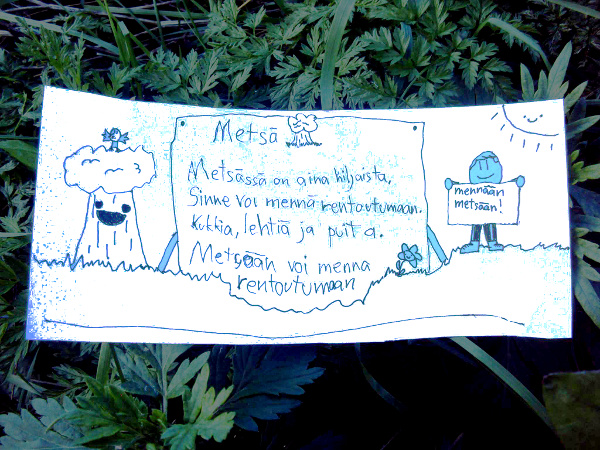 Metsä
Metsässä on aina hiljaista.
Sinne voi mennä rentoutumaan.
Kukkia, lehtiä ja puita.
Metsään voi menna
rentoutumaan
mennään
metsään!